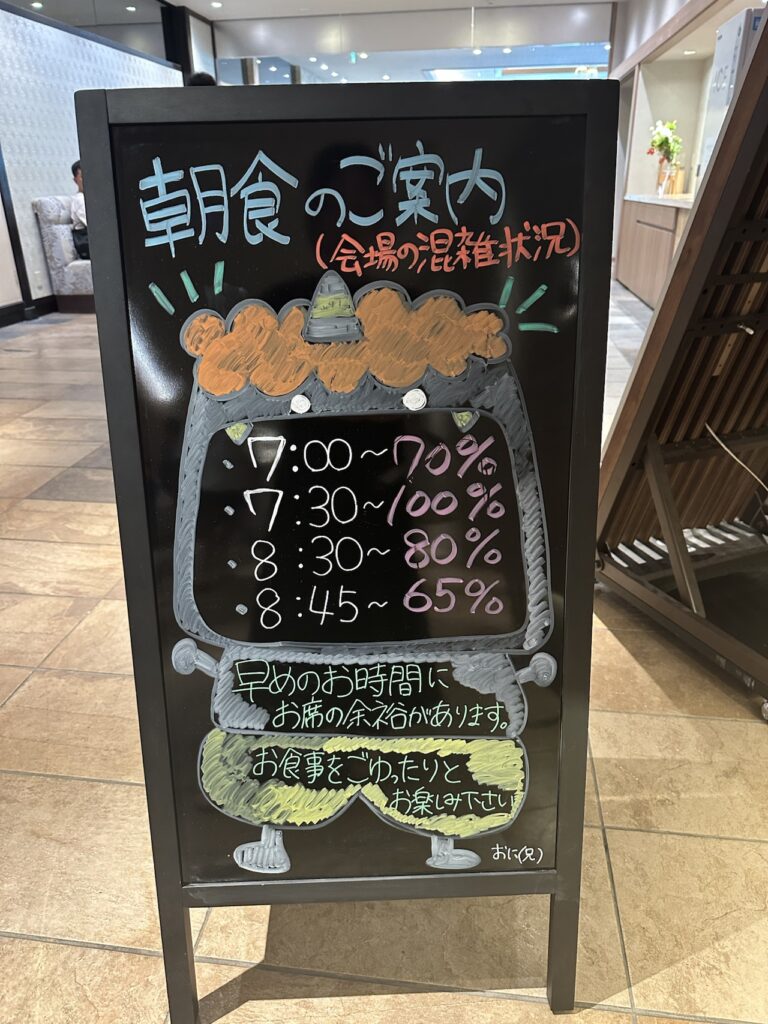 朝食のご案内
(会場の混雑状況)
・7:00~70%
・7:30~100%
・8:30~80%
・8:45~65%
早めのお時間に
お席の余裕があります。
お食事をごゆったりと
お楽しみ下さい
おに(兄)